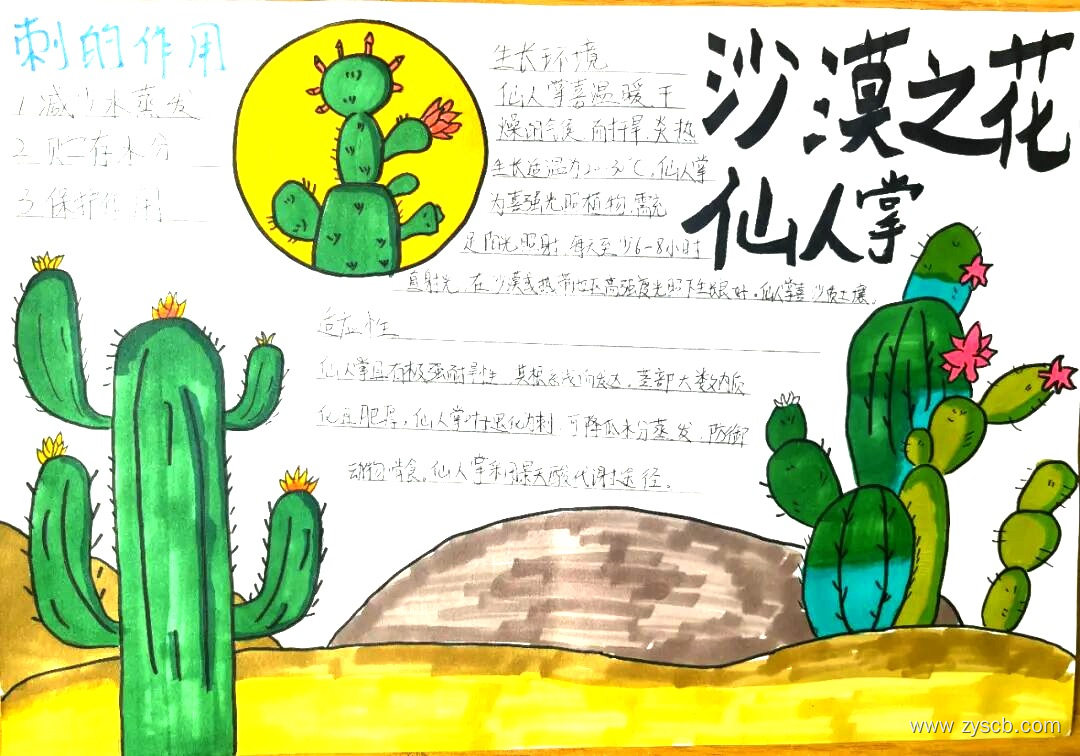 沙漠之花
仙人掌
刺的作用
1 减少水蒸发
2 贮存水分
3 保护作用
生长环境
仙人掌喜温暖干
燥的气候 耐干旱 炎热
生长适温为20-30℃,仙人掌
为喜强光照植物,需充
足阳光照射,每天至少6-8小时
直射光,在沙漠或热带地区高强度光照下生长良好。仙人掌喜沙质土壤。
适应性
仙人掌具有极强耐旱性,其根系 发达,茎部大多数肉质
化且肥厚,仙人掌叶子退化为刺,可降低水分蒸发,防御
动物啃食。仙人掌利用景天酸代谢途径。
www.zyscb.com